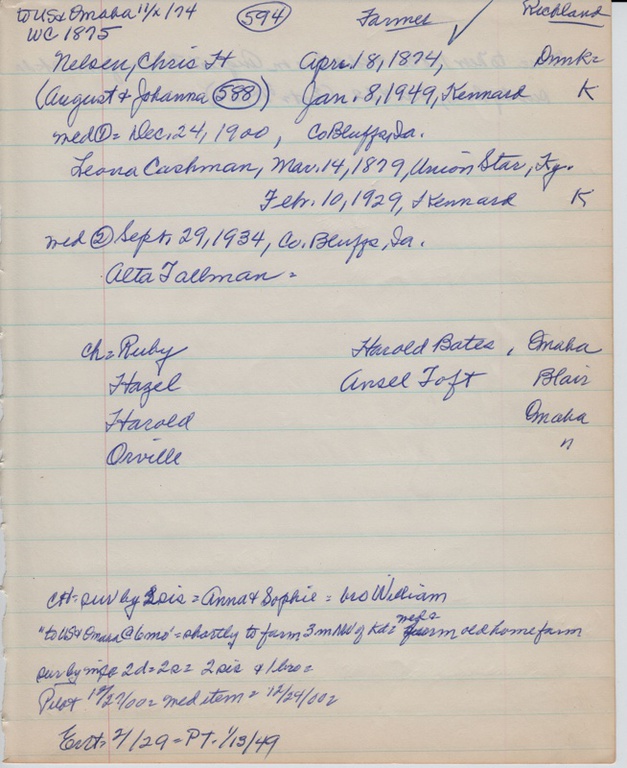 to US & Omaha 11/2/74 594 Farmer ✓ Richland
WC 1875
Nelsen, Chris H Apr. 18, 1874, Dnmk=
(August & Johanna 588) Jan. 8, 1949, Kennard K
med ① = Dec. 24, 1900, Co Bluffs, Ia.
Leona Cashman, Mar. 14, 1879, Union Star, Ky.
Feb. 10, 1929, Kennard K
med ② Sept. 29, 1934, Co. Bluffs, Ia.
Alta Tallman =
ch = Ruby Harold Bates, Omaha
Hazel Ansel Toft Blair
Harold Omaha
Orville "
CH = sur by 2 sis = Anna & Sophie = bro William
"to US & Omaha @ 6 mo" = shortly to farm 3 m NW of Kd = med = farm old home farm
sur by wife 2d = 2s = 2 sis & 1 bro =
Pilot 12/27/00 = med item = 12/24/00 =
Ent 2/29 = P.T. 1/13/49